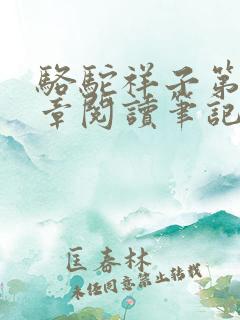 駱駝祥子第
章閱讀筆記
匡春林
未經同意禁止轉載